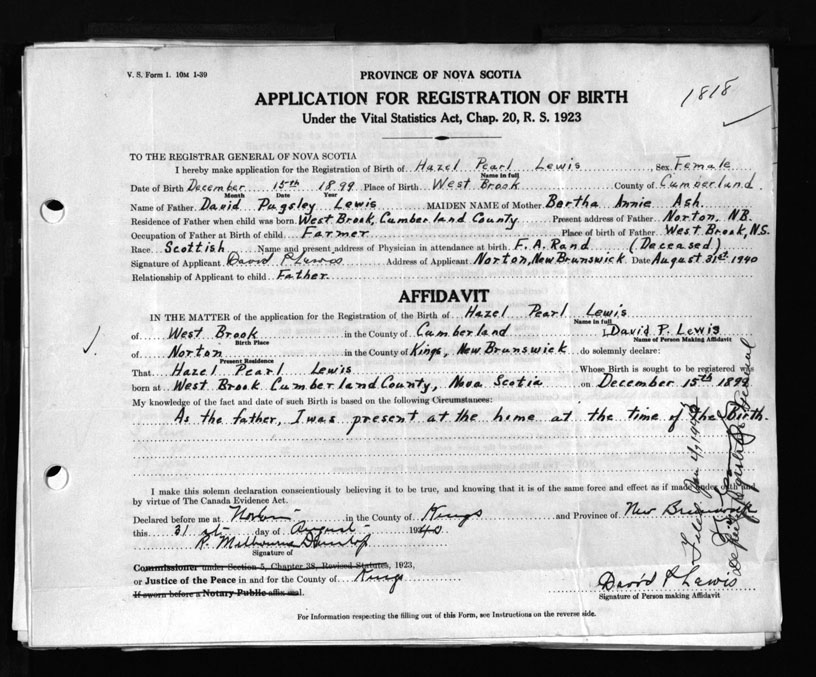 V. S. Form 1. 10M 1-39
PROVINCE OF NOVA SCOTIA
1818
APPLICATION FOR REGISTRATION OF BIRTH
Under the Vital Statistics Act, Chap. 20, R. S. 1923
TO THE REGISTRAR GENERAL OF NOVA SCOTIA
I hereby make application for the Registration of Birth of Hazel Pearl Lewis Sex Female
Name in full
Date of Birth December 15th 1899 Place of Birth West Brook County of Cumberland
Month Date Year
Name of Father David Pugsley Lewis MAIDEN NAME of Mother Bertha Annie Ash
Residence of Father when child was born West Brook, Cumberland County Present address of Father Norton, NB.
Occupation of Father at Birth of child Farmer Place of birth of Father West Brook, N.S.
Race Scottish Name and present address of Physician in attendance at birth F. A. Rand (Deceased)
Signature of Applicant David P Lewis Address of Applicant Norton, New Brunswick Date August 31st 1940
Relationship of Applicant to child Father
AFFIDAVIT
IN THE MATTER of the application for the Registration of the Birth of Hazel Pearl Lewis
Name in full
of West Brook in the County of Cumberland I, David P. Lewis
Birth Place Name of Person Making Affidavit
of Norton in the County of Kings, New Brunswick do solemnly declare:
Present Residence
That Hazel Pearl Lewis Whose Birth is sought to be registered was
born at West Brook Cumberland County, Nova Scotia on December 15th 1899
My knowledge of the fact and date of such Birth is based on the following Circumstances:
As the father, I was present at the home at the time of the Birth.
I make this solemn declaration conscientiously believing it to be true, and knowing that it is of the same force and effect as if made under oath and
by virtue of The Canada Evidence Act.
Declared before me at Norton in the County of Kings and Province of New Brunswick
this 31 st day of August 1940
R. Milbourne Dunlop
Signature of
Commissioner under Section 5, Chapter 38, Revised Statutes, 1923,
or Justice of the Peace in and for the County of Kings
If sworn before a Notary Public affix seal.
David P Lewis
Signature of Person making Affidavit
For Information respecting the filling out of this Form, see Instructions on the reverse side.
Deputy Registrar General